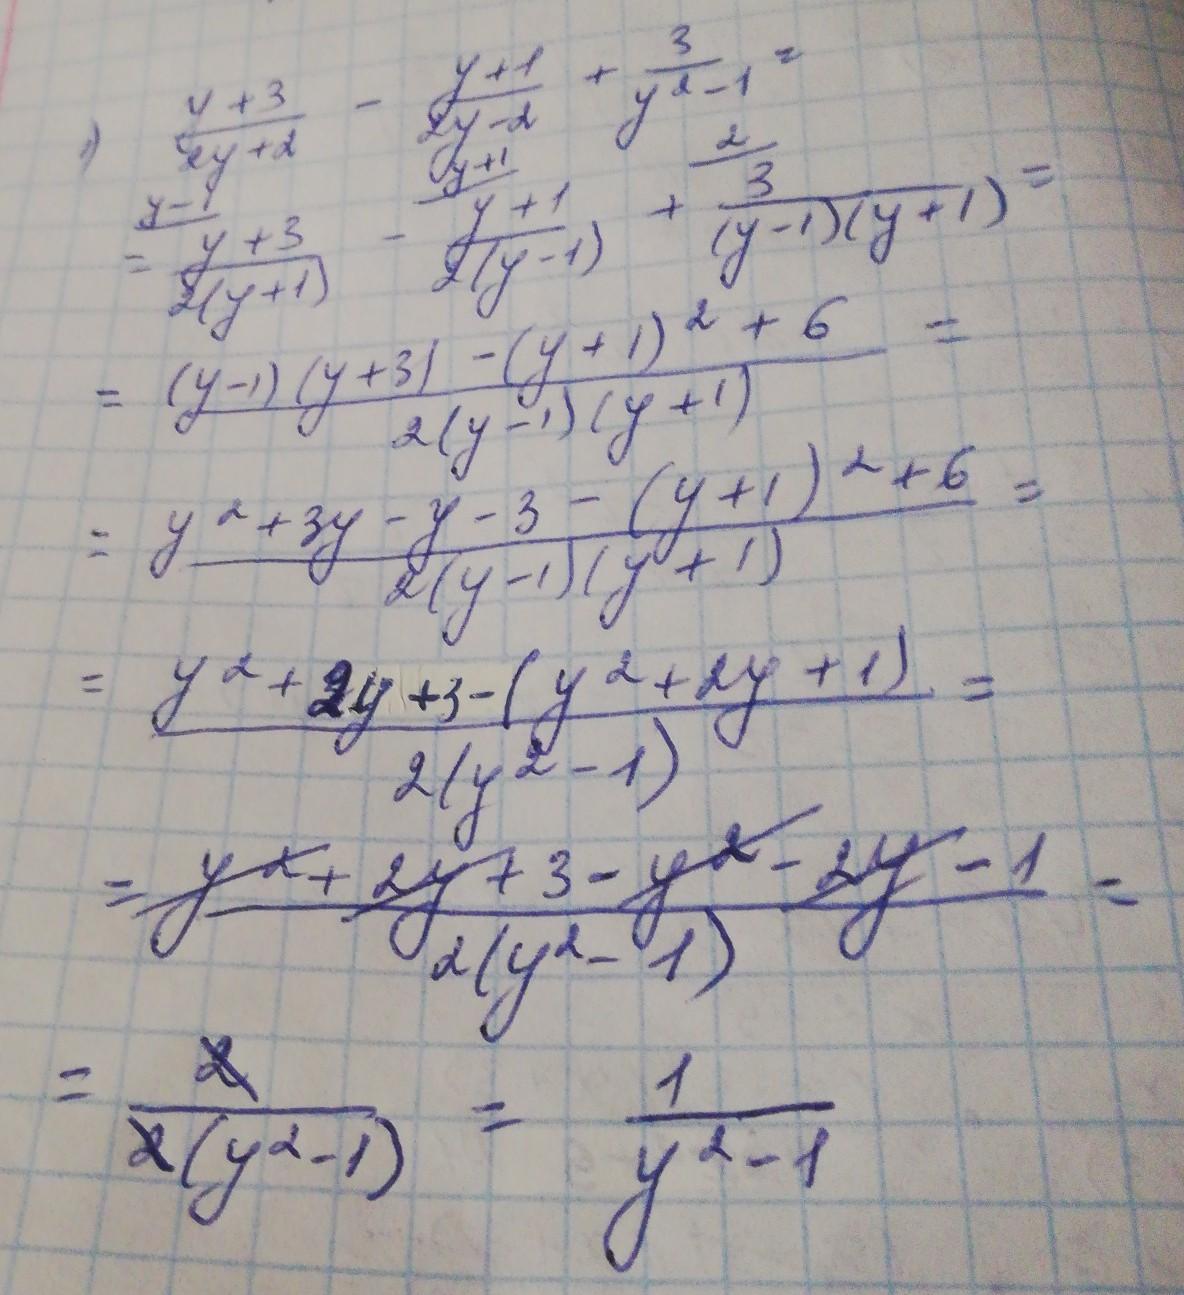 1) (y+3)/(2y+2) - (y+1)/(2y-2) + 3/(y²-1) =
= y-1/ (y+3)/(2(y+1)) - y+1/ (y+1)/(2(y-1)) + 2/ 3/((y-1)(y+1)) =
= ((y-1)(y+3) - (y+1)² + 6)/(2(y-1)(y+1)) =
= (y² + 3y - y - 3 - (y+1)² + 6)/(2(y-1)(y+1)) =
= (y² + 2y + 3 - (y² + 2y + 1))/(2(y²-1)) =
= (y² + 2y + 3 - y² - 2y - 1)/(2(y²-1)) =
= 2/(2(y²-1)) = 1/(y²-1)